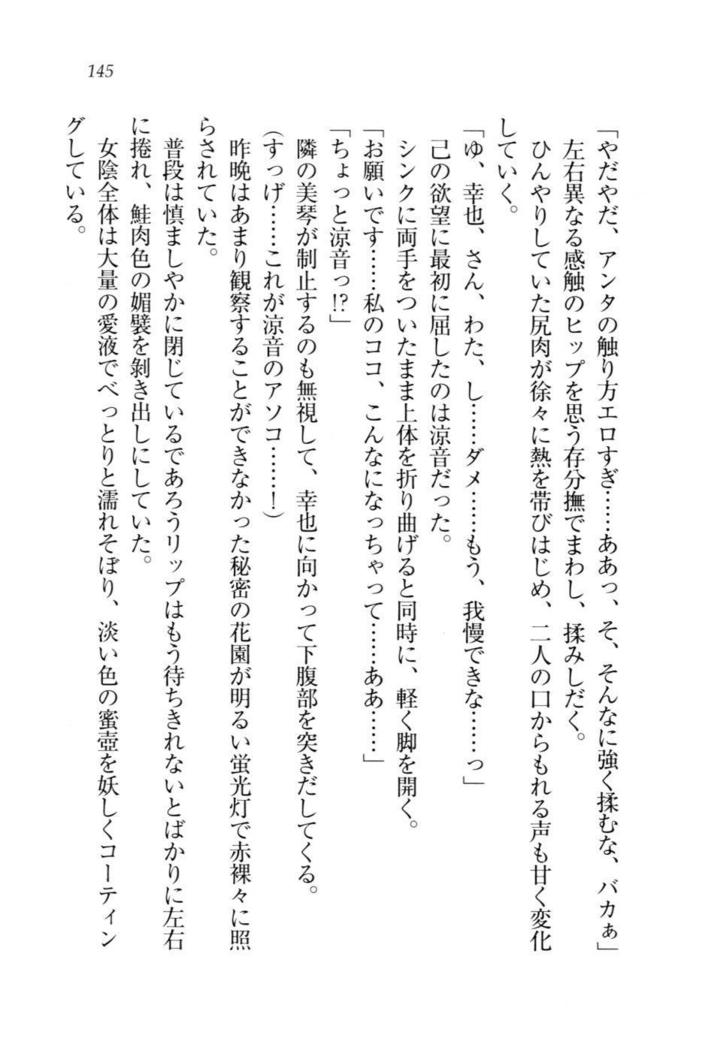 145
「やだやだ、アンタの触り方エロすぎ……ああっ、そ、そんなに強く揉むな、バカぁ」
左右異なる感触のヒップを思う存分撫でまわし、揉みしだく。
ひんやりしていた尻肉が徐々に熱を帯びはじめ、二人の口からもれる声も甘く変化
していく。
「ゆ、幸也、さん、わた、し……ダメ……もう、我慢できな……っ」
己の欲望に最初に屈したのは涼音だった。
シンクに両手をついたまま上体を折り曲げると同時に、軽く脚を開く。
「お願いです……私のココ、こんなになっちゃって……ああ……」
「ちょっと涼音っ!?」
隣の美琴が制止するのも無視して、幸也に向かって下腹部を突きだしてくる。
（すっげ……これが涼音のアソコ……！）
昨晩はあまり観察することができなかった秘密の花園が明るい蛍光灯で赤裸々に照
らされていた。
普段は慎ましやかに閉じているであろうリップはもう待ちきれないとばかりに左右
に捲れ、鮭肉色の媚襞を剝き出しにしていた。
女陰全体は大量の愛液でべっとりと濡れそぼり、淡い色の蜜壺を妖しくコーティン
グしている。